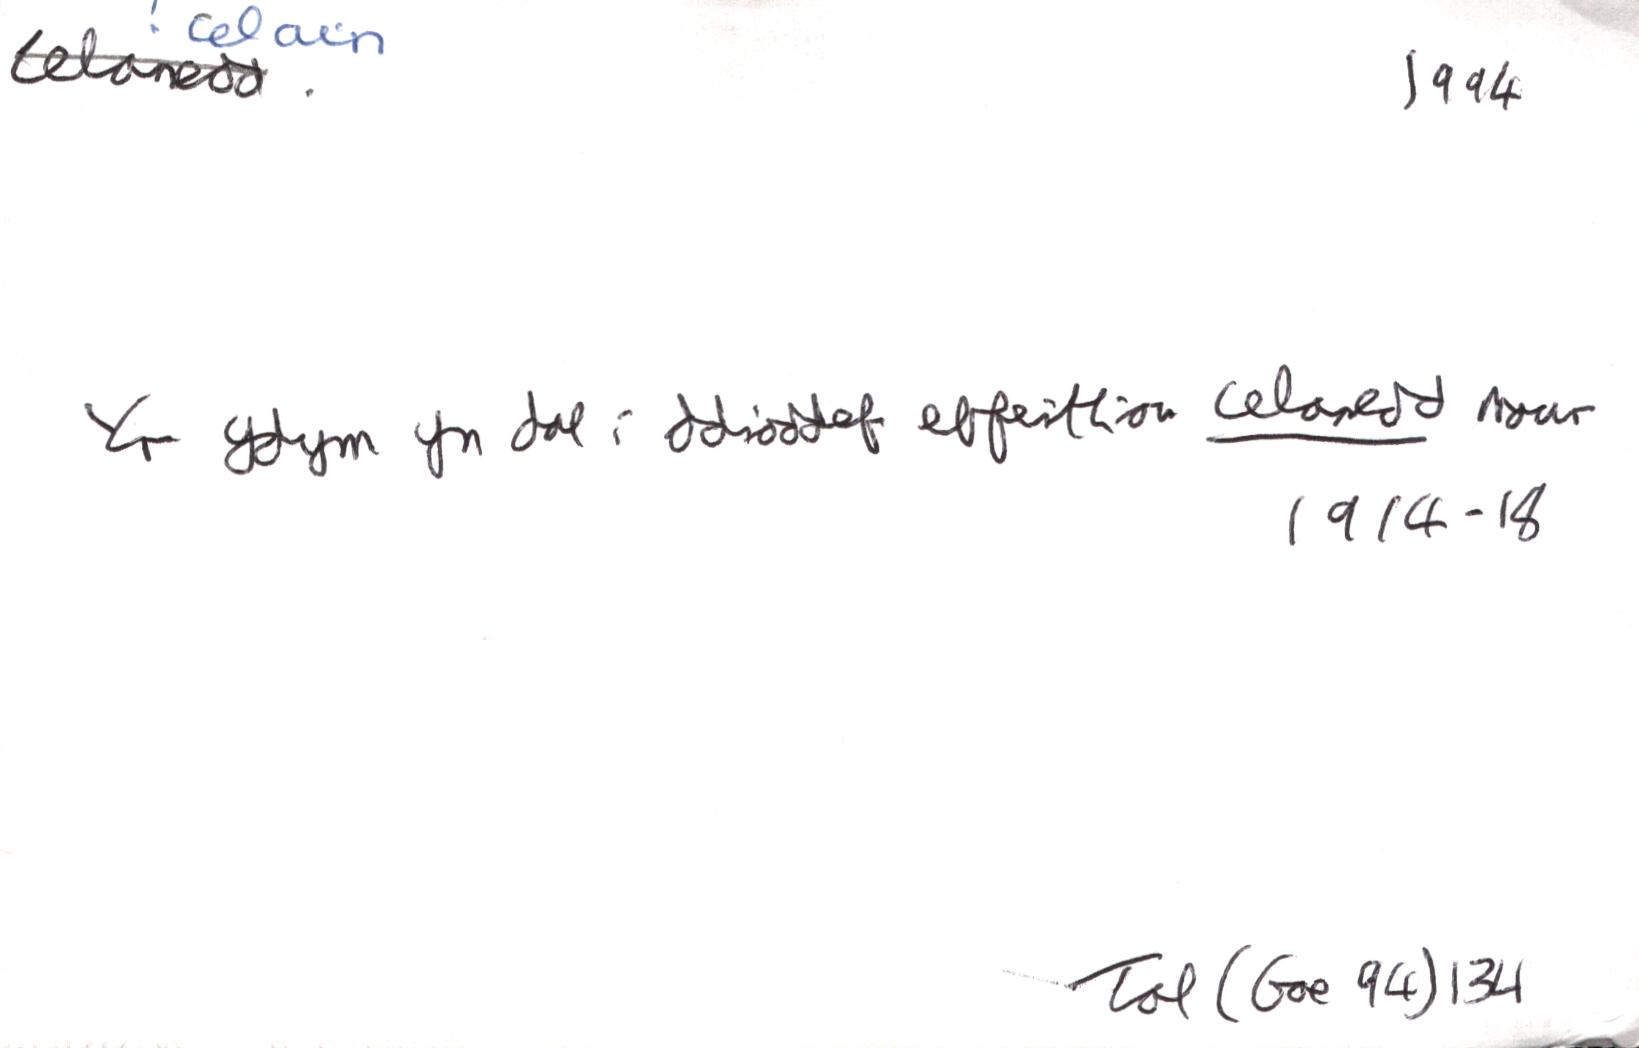 : celain
celanedd.
1994
Yr ydym yn dal i ddioddef effeithiau celanedd mawr
1914-18
Tal (Gae 94) 134